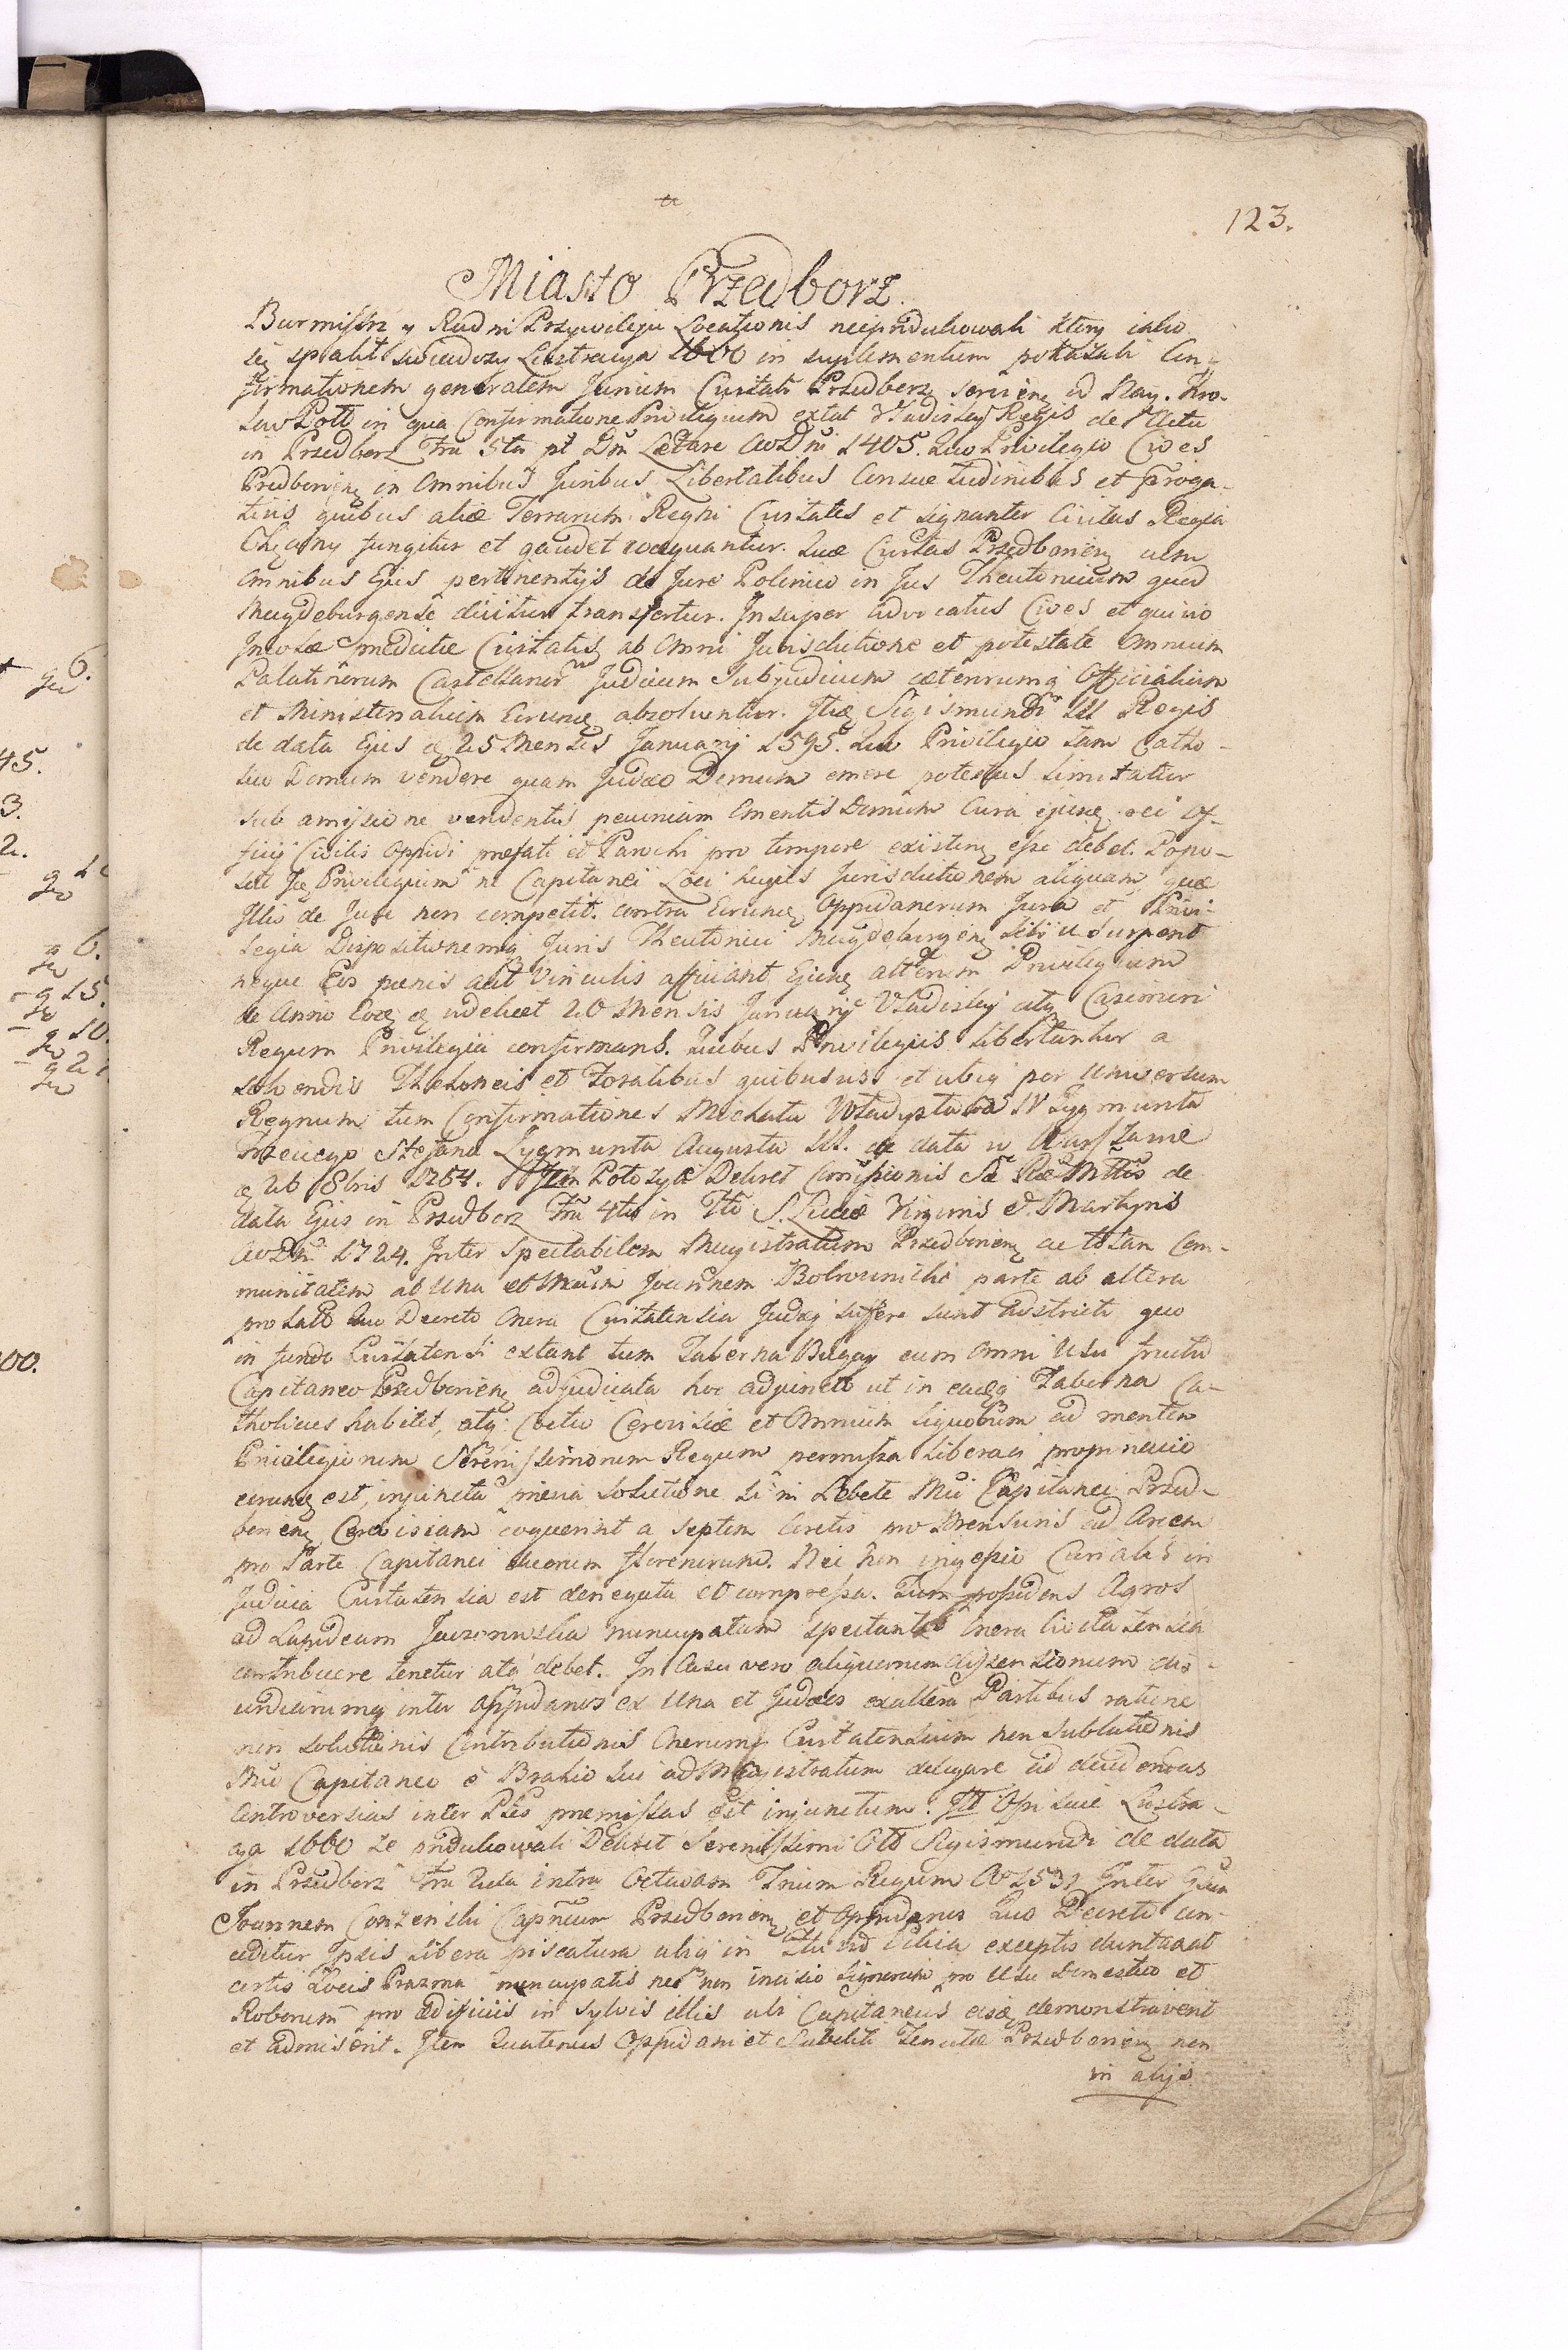 123.
Miasto Przedborz.
Burmistrz y Radni Przywileju Locationis nieprodukowali ktory iako
się spalił swiadczy Lustracya 1660 in suplementum pokazali Con-
firmationem generalem Jurium Civitati Przedborz
in qua Confirmatione Privilegium extat Vladislai Regis de Actu
in Przedborz Fra 5ta pt Dm Lætare AoDni 1405. Quo Privilegio Cives
Predborien in Omnibus Juribus Libertatibus Consuetudinibus et Proga-
tivis quibus aliæ Terrarum Regni Civitates et signanter Civitas Regia
Checiny fungitur et gaudet coæquantur. Quæ Civitas Przedborien cum
Omnibus Ejus pertinentijs de Jure Polonico in Jus Theutonicum quod
Magdeburgense dicitur transfertur. Insuper advocatus Cives et quivis
Incolæ prædictæ Civitatis ab Omni Jurisdictione et potestate Omnium
Palatinorum Castellanor Judicum Subjudicum cæterorumq Officialium
et Ministerialium Eorunq absolvuntur. Sigismundi III Regis
de data Ejus 25 Mensis January 1595. Quo Privilegio tam Catho-
lico Domum vendere quam Judæo Domum emere potestas limitatur
sub amissione vendentis pecuniam Ementis Domum Cura ejusq rei Of-
ficij Civilis Oppidi prefati et Parochi pro tempore existen esse debet.
Privilegium ne Capitanei Loci hujus Jurisdictionem aliquam quæ
Illi de Jure non competit. contra Oppidanorum Jura et Privi-
legia Dispositionemq Juris Theutonici Magdeburgen sibi usurpent
neque Eos pænis aut Vinculis afficiant Ejusq alterum Privilegium
de Anno videlicet 20 Mensis January Vladislai atq Casimiri
Regum Privilegia confirmans. Quibus Privilegijs libertantur a
solvendis Theloneis et Foralibus quibusvis et ubiq per Universum
Regnum tum Confirmationes Michała Władysława IV Zygmunta
Trzeciego Stefana Zygmunta Augusta III. de data w Warszawie
26 8bris 1764. Item Decret Comissionis de
data Ejus in Przedborz Fra 4ta in S. Luciæ Virginis et Martyris
AoDni 1724. Inter Spectabilem Magistratum Przedborien ac totam Com-
munitatem ab Una et Joannem parte ab altera
prolato Quo Decreto Onera Civitatensia Judæi sufferre sunt adstricti quo
in fundo Civitatensi extant tum Taberna Bugay cum Omni Usu fructu
Capitaneo Przedborien adjudicata hoc adjuncto ut in eadeq Taberna Ca-
tholicus habitet, atq Coctio Cerevisiæ et Omnium liquorum ad mentem
Privilegiorum Serenissimorum Regum permissa liberaq propinacio
eorunq est, injuncta prævia Solutione si in Lebete Capitanei Przed-
borien Cerevisiam coquerint a septem Coretis pro Mensuris ad Arcem
pro Parte Capitanei duorum florenorum. Nec non in
Judicia Civitatensia est denegata et compressa. Tum possidens Agros
ad Lapideam nuncupatam spectantes Onera Civitatensia
contribuere tenetur atq debet. In Casu vero aliquorum dissensionum dis-
cordiarumq inter Oppidanos ex Una et Judæos ex altera Partibus ratione
non solutionis Contributionis Onerumq Civitatensium non Sublationis
Capitaneo è Brahio Sui ad Magistratum delegare ad decidendas
Controversias inter præmissas est injunctum. Lustra-
cya 1660 że produkowali Decret Serenissimi Sigismundi de data
in Przedborz intra Octavam Trium Regum Ao 153 Inter
Joannem Capneum Przedborien et Oppidanos Quo Decreto con-
ceditur Ipsis libera piscatura ubiq in exceptis duntaxat
certis Locis nuncupatis nec non incisio Lignorum pro Usu Domestico et
Roborum pro ædificiis in Sylvis illis ubi Capitaneus eisq demonstraverit
et admiserit. Item Quatenus Oppidani et Subditi Tenutæ Przedborien non
in alijs